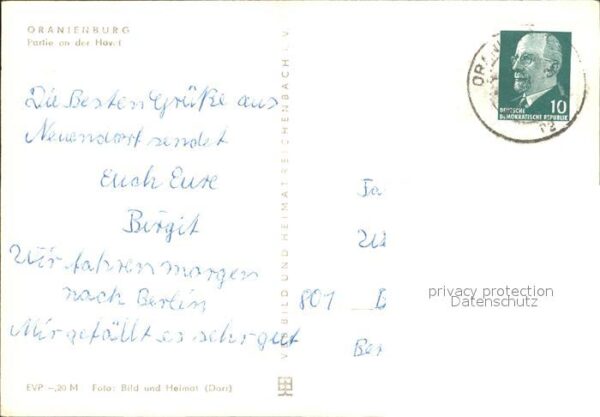 ORANIENBURG
Partie an der Havel
Die Besten Grüße aus
Neuendorf sendet
Euch Eure
Birgit
Wir fahren morgen
nach Berlin
Mir gefällt es sehr gut
EVP -,20 M Foto: Bild und Heimat (Darr)
VEB BILD UND HEIMAT REICHENBACH I. V.
10
DEUTSCHE
DEMOKRATISCHE REPUBLIK
801
privacy protection
Datenschutz